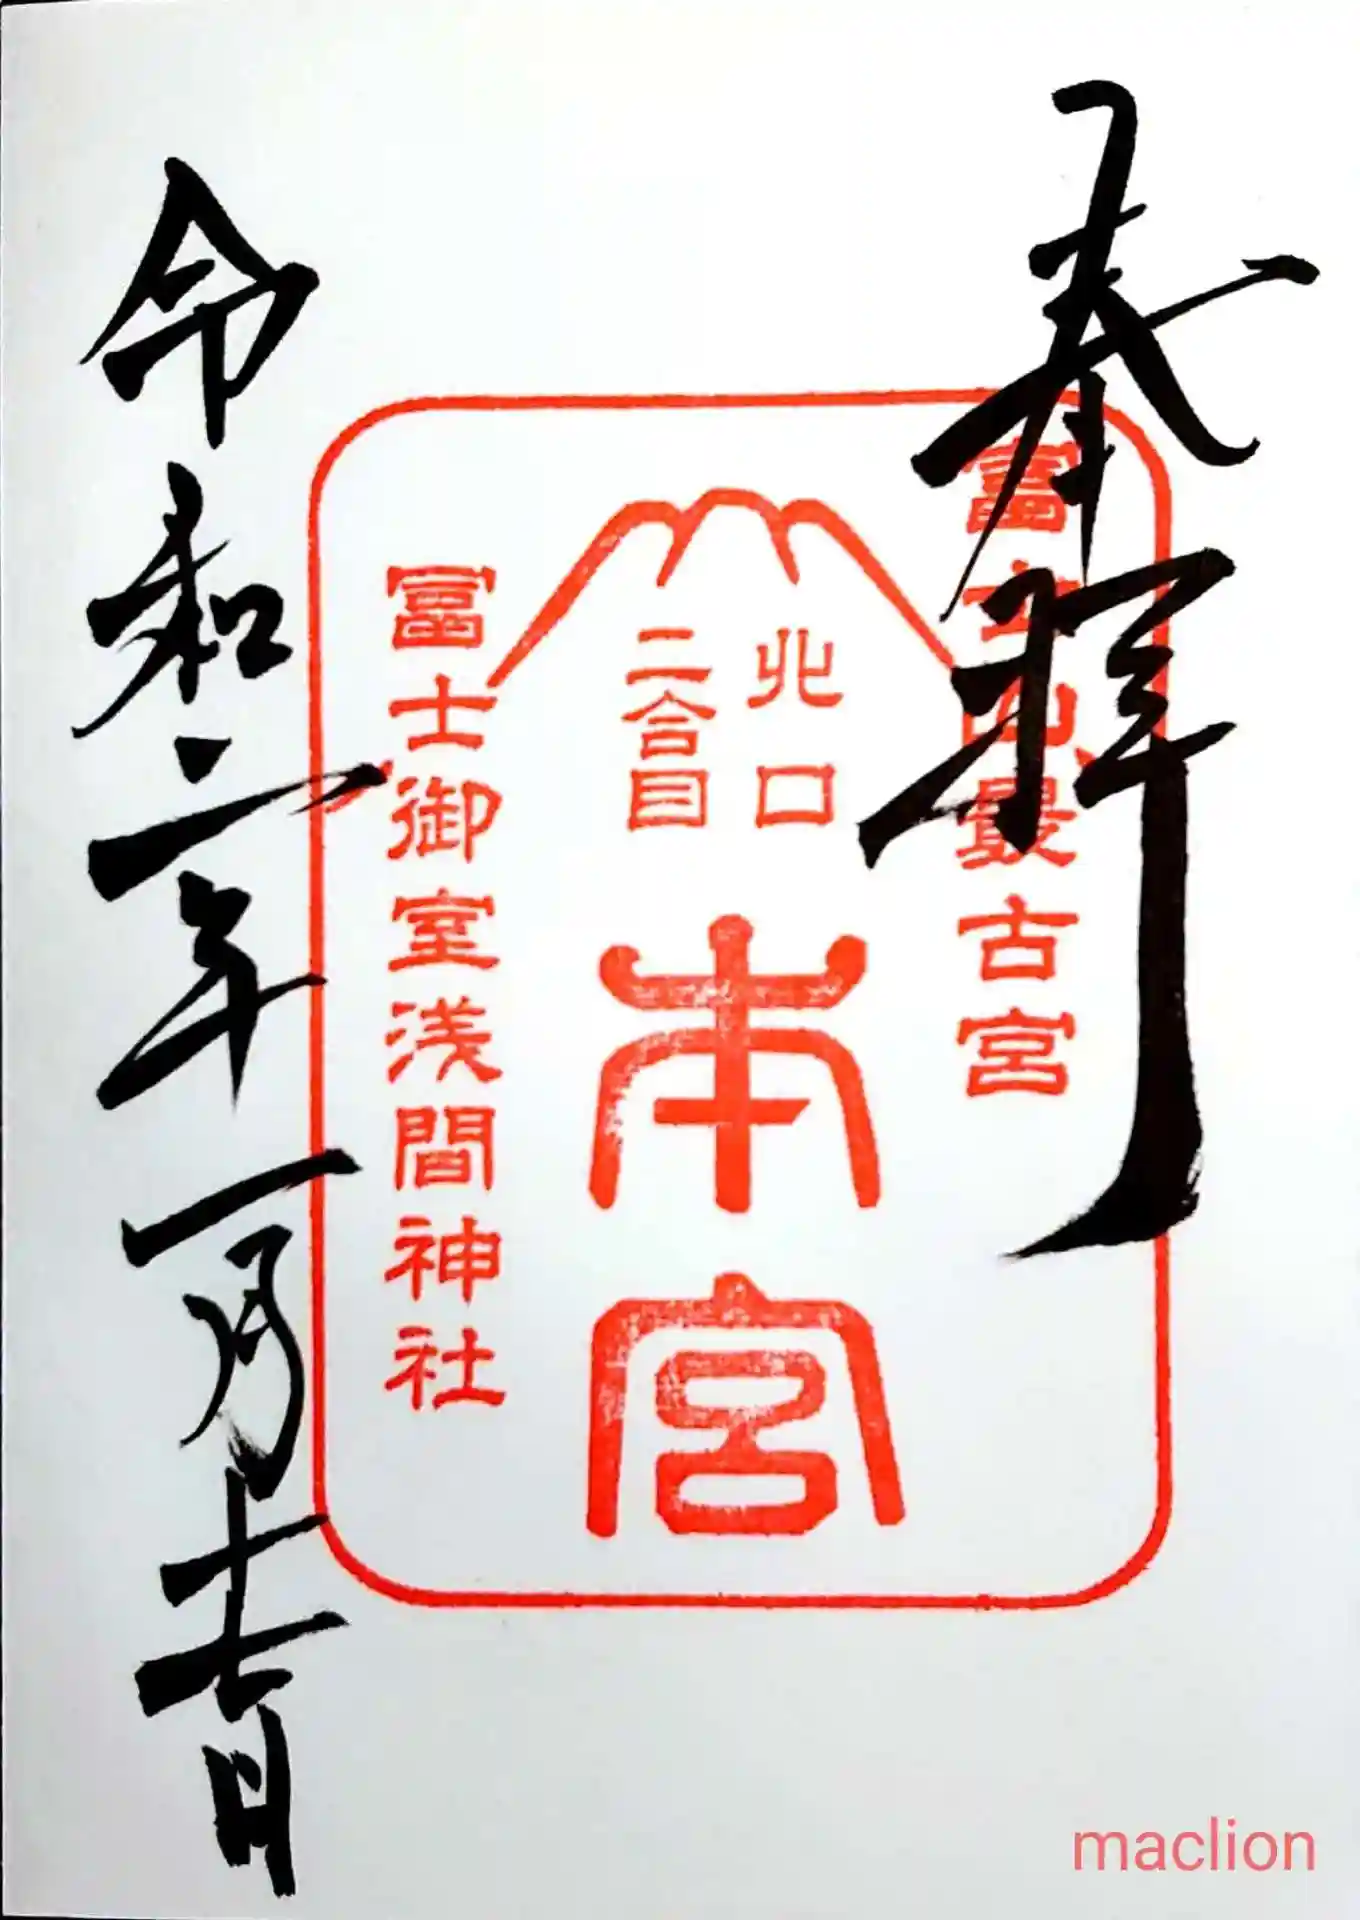 奉拝
冨士山最古宮
北口
二合目
本宮
冨士御室浅間神社
令和二年一月十七日
maclion